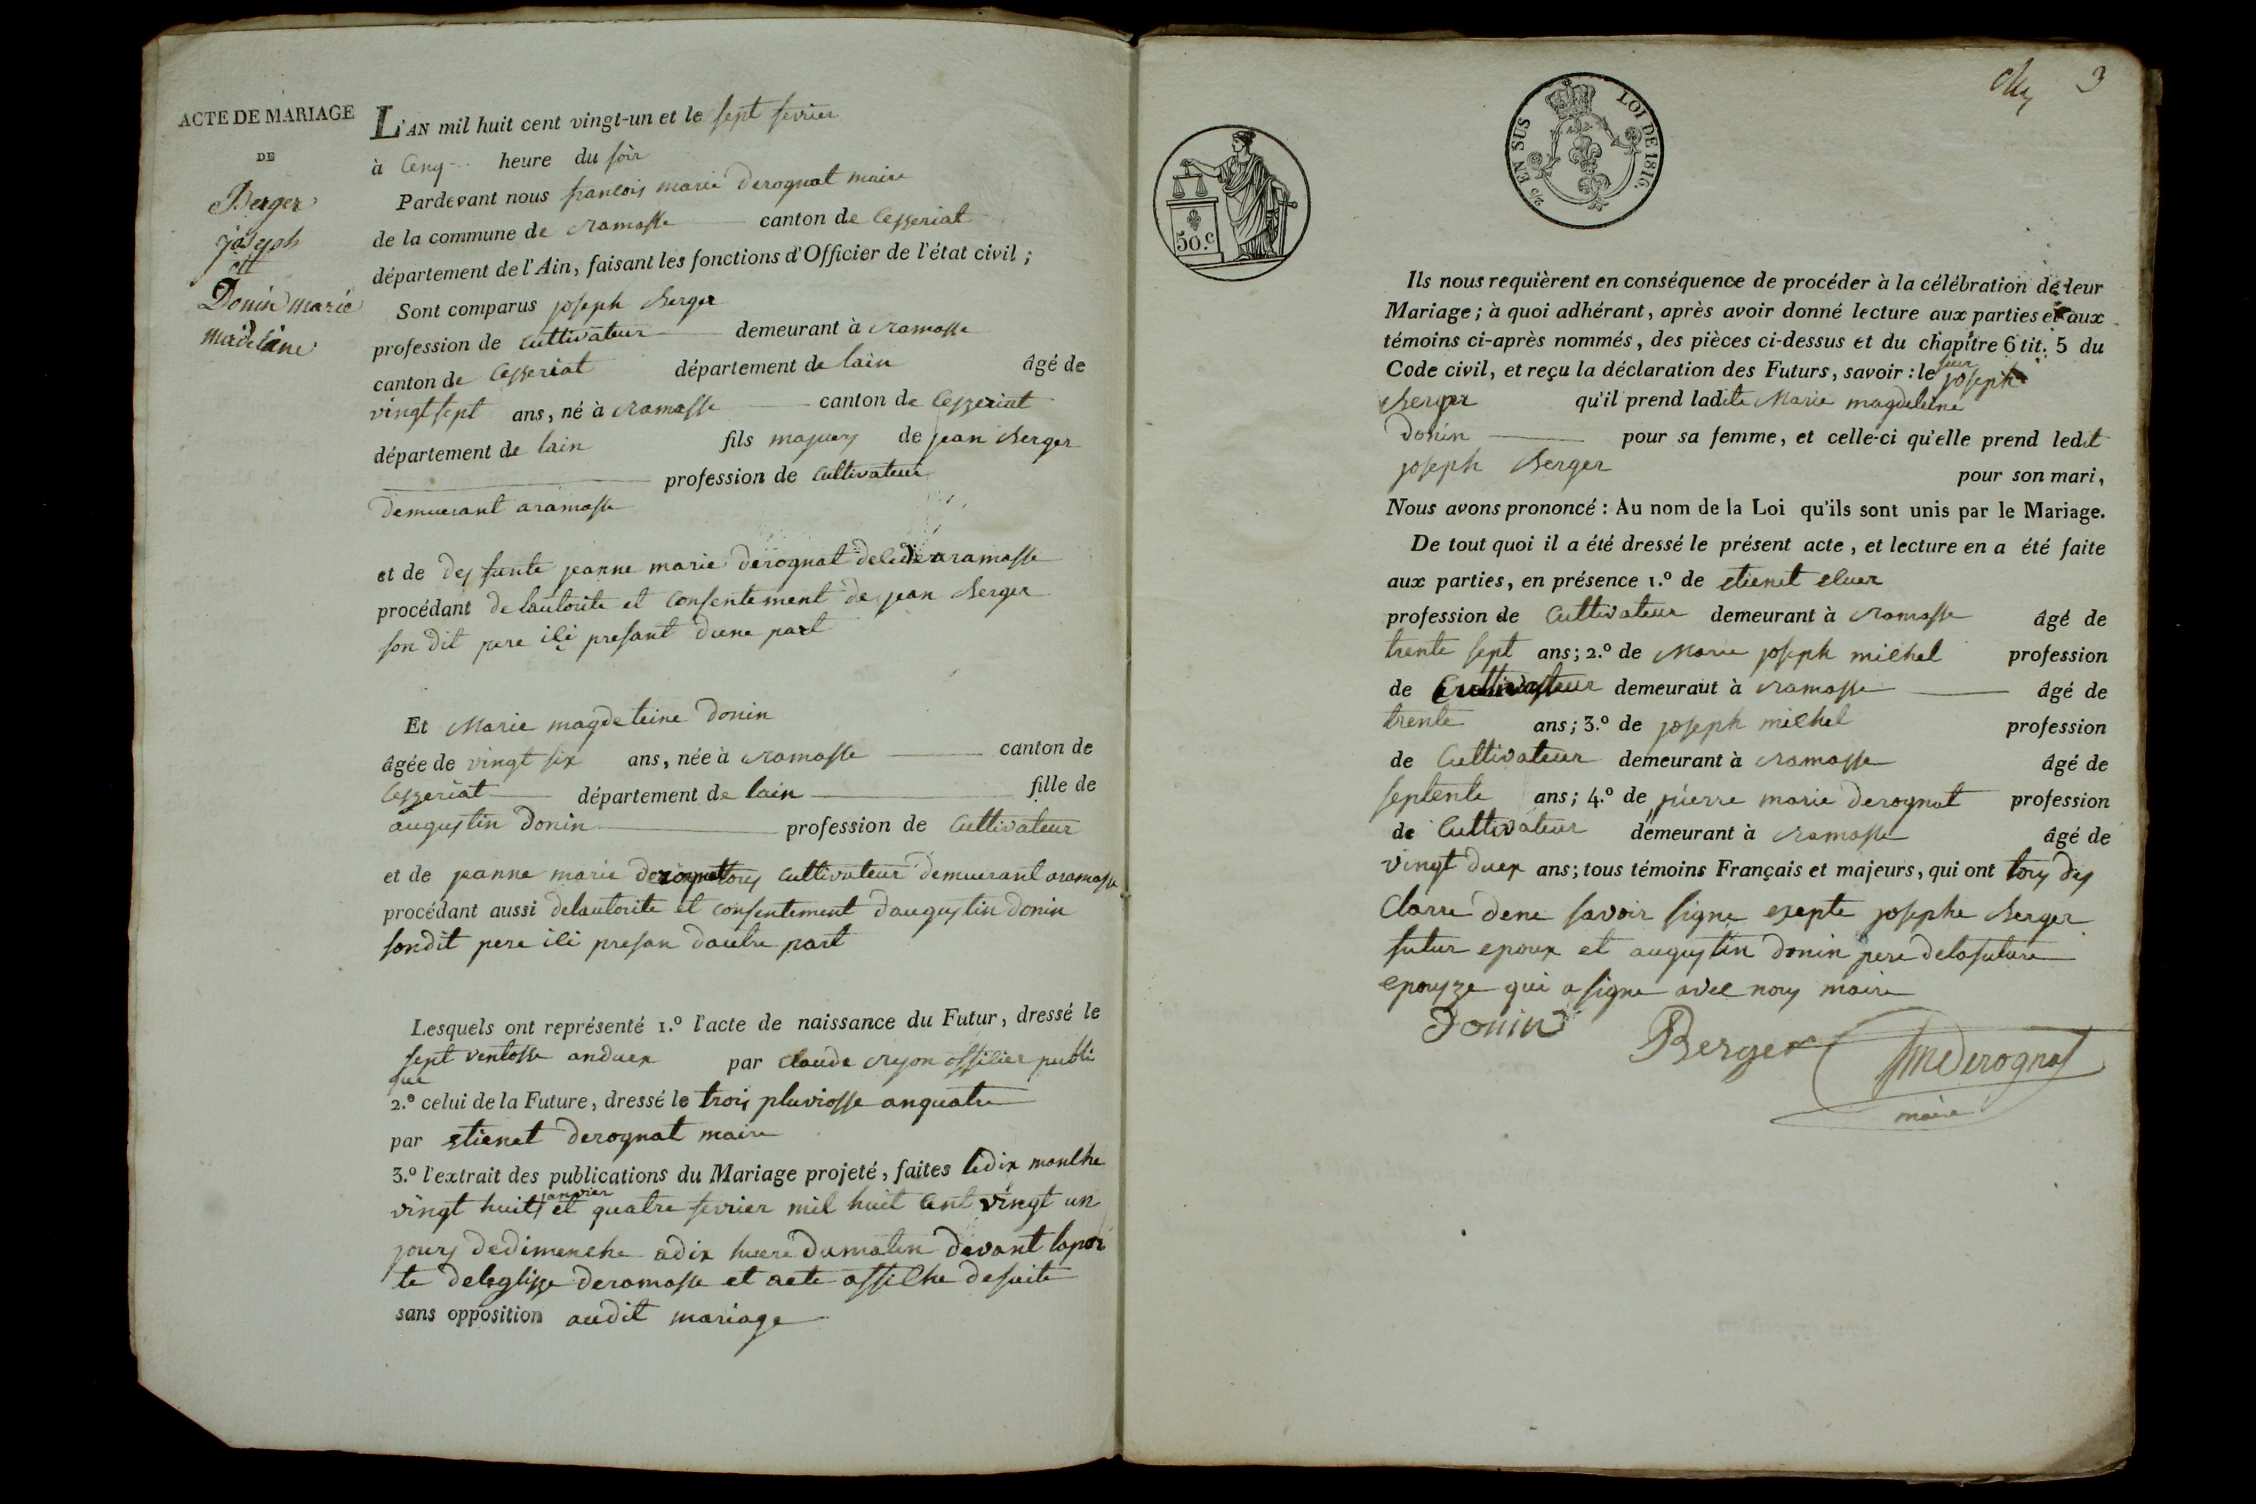 ACTE DE MARIAGE
DE
Berger
joseph
ett
Donin marie
madelaine
L'AN mil huit cent vingt-un et le sept fevrier
à Cenq heure du soir
Pardevant nous francois marie derognat maire
de la commune de ramasse canton de Cesseriat
département de l'Ain, faisant les fonctions d'Officier de l'état civil ;
Sont comparus joseph Berger
profession de cultivateur demeurant à ramasse
canton de Cesseriat département de lain âgé de
vingt sept ans, né à ramasse canton de Cezeriat
département de lain fils majuer de jean Berger
profession de Cultivateur
demuerant aramasse
et de des funte jeanne marie derognat aramasse
procédant de lautorite et Consentement de jean Berger
son dit pere ili presant dune part
Et Marie magdeleine donin
âgée de vingt six ans, née à ramasse canton de
Cezeriat département de lain fille de
augustin donin profession de Cultivateur
et de jeanne marie cultivateur demuerant aramasse
procédant aussi delautorite et consentement daugustin donin
sondit pere ili presan dautre part
Lesquels ont représenté 1.º l'acte de naissance du Futur, dressé le
sept ventosse anduex par Claude offilier publi
que
2.º celui de la Future, dressé le trois pluviosse anquatre
par etienet derognat maire
3.º l'extrait des publications du Mariage projeté, faites
vingt huit janvier et quatre fevrier mil huit Cent vingt un
jours dedimenche adix huere dumaten devant lapor
te deleglisse deramasse et acte affilhe desuite
sans opposition audit mariage
3
50.c
2/5 EN SUS LOI DE 1816.
Ils nous requièrent en conséquence de procéder à la célébration de leur
Mariage ; à quoi adhérant, après avoir donné lecture aux parties et aux
témoins ci-après nommés, des pièces ci-dessus et du chapitre 6 tit. 5 du
Code civil, et reçu la déclaration des Futurs, savoir : le joseph
Berger qu'il prend ladite Marie magdeleine
donin pour sa femme, et celle-ci qu'elle prend ledit
joseph Berger pour son mari,
Nous avons prononcé : Au nom de la Loi qu'ils sont unis par le Mariage.
De tout quoi il a été dressé le présent acte, et lecture en a été faite
aux parties, en présence 1.º de etienet
profession de Cultivateur demeurant à ramasse âgé de
trente sept ans ; 2.º de Marie joseph milhel profession
de Cultivateur demeurant à ramasse âgé de
trente ans ; 3.º de joseph milhel profession
de Cultivateur demeurant à ramasse âgé de
septente ans ; 4.º de pierre marie derognat profession
de Cultivateur demeurant à ramasse âgé de
vingt duex ans ; tous témoins Français et majeurs, qui ont tous des
Clarre dene savoir signe exepte josephe Berger
futur epoux et augustin donin pere delafuture
epouze qui a signe avec nous maire
Donin
Berger
fmderognat
maire